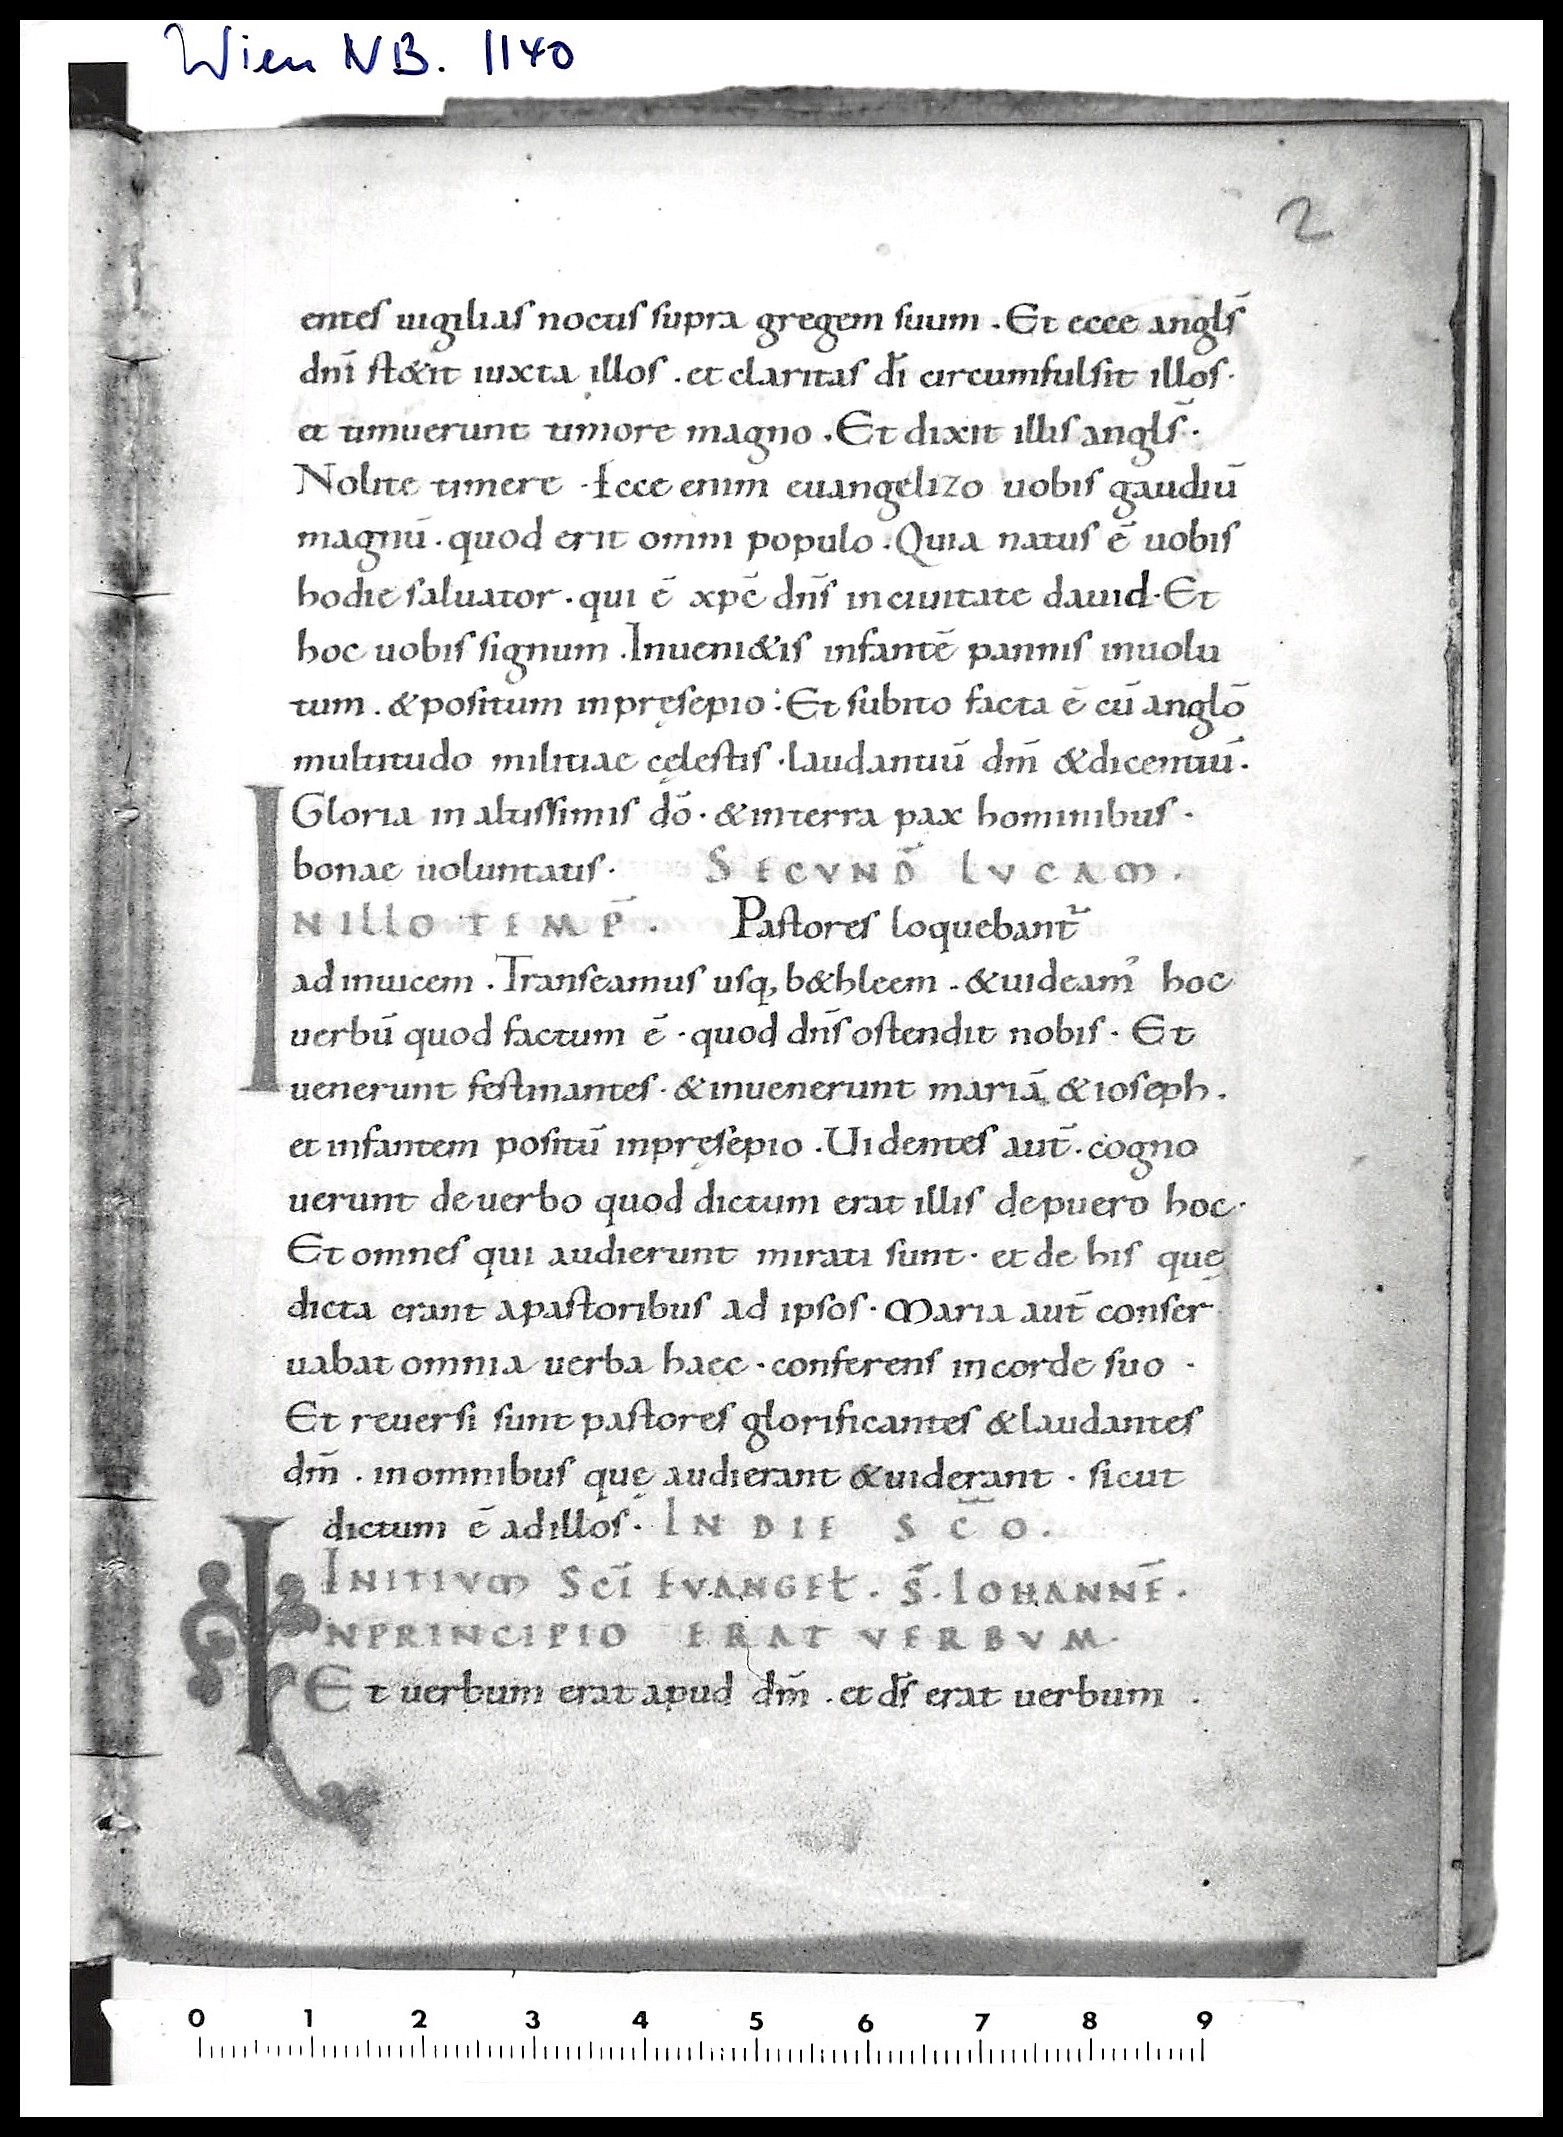 Wien NB. 1140
2
entes uigilias noctis supra gregem suum . Et ecce angl̅s
dn̅i st&it iuxta illos . et claritas d̅i circumfulsit illos .
et timuerunt timore magno . Et dixit illis angl̅s .
Nolite timere . Ecce enim euangelizo uobis gaudiu̅
magnu̅ . quod erit omni populo . Quia natus e̅ uobis
hodie saluator . qui e̅ xpc̅ dn̅s in ciuitate dauid . Et
hoc uobis signum . Inueni&is infante̅ pannis inuolu
tum . & positum in pręsepio : Et subito facta e̅ cu̅ anglo̅
multitudo militiae cęlestis . laudantiu̅ dm̅ & dicentiu̅ .
Gloria in altissimis do̅ . & in terra pax hominibus .
bonae uoluntatis . SECVND̅ LVCAM .
INILLO TEMP̅ . Pastores loquebant̅
ad inuicem . Transeamus usq, b&hleem . & uideam᾿ hoc
uerbu̅ quod factum e̅ . quod dn̅s ostendit nobis . Et
uenerunt festinantes . & inuenerunt maria̅ & ioseph .
et infantem positu̅ in pręsepio . Uidentes aut̅ . cogno
uerunt de uerbo quod dictum erat illis de puero hoc .
Et omnes qui audierunt mirati sunt . et de his quę
dicta erant a pastoribus ad ipsos . Maria aut̅ conser
uabat omnia uerba haec . conferens in corde suo .
Et reuersi sunt pastores glorificantes & laudantes
dm̅ . in omnibus quę audierant & uiderant . sicut
dictum e̅ ad illos . IN DIE SC̅O .
INITIVM SCI̅ EVANGEL̅ . S̅ . IOHANNE̅ .
IN PRINCIPIO ERAT VERBVM .
Et uerbum erat apud dm̅ . et ds̅ erat uerbum .
0 1 2 3 4 5 6 7 8 9